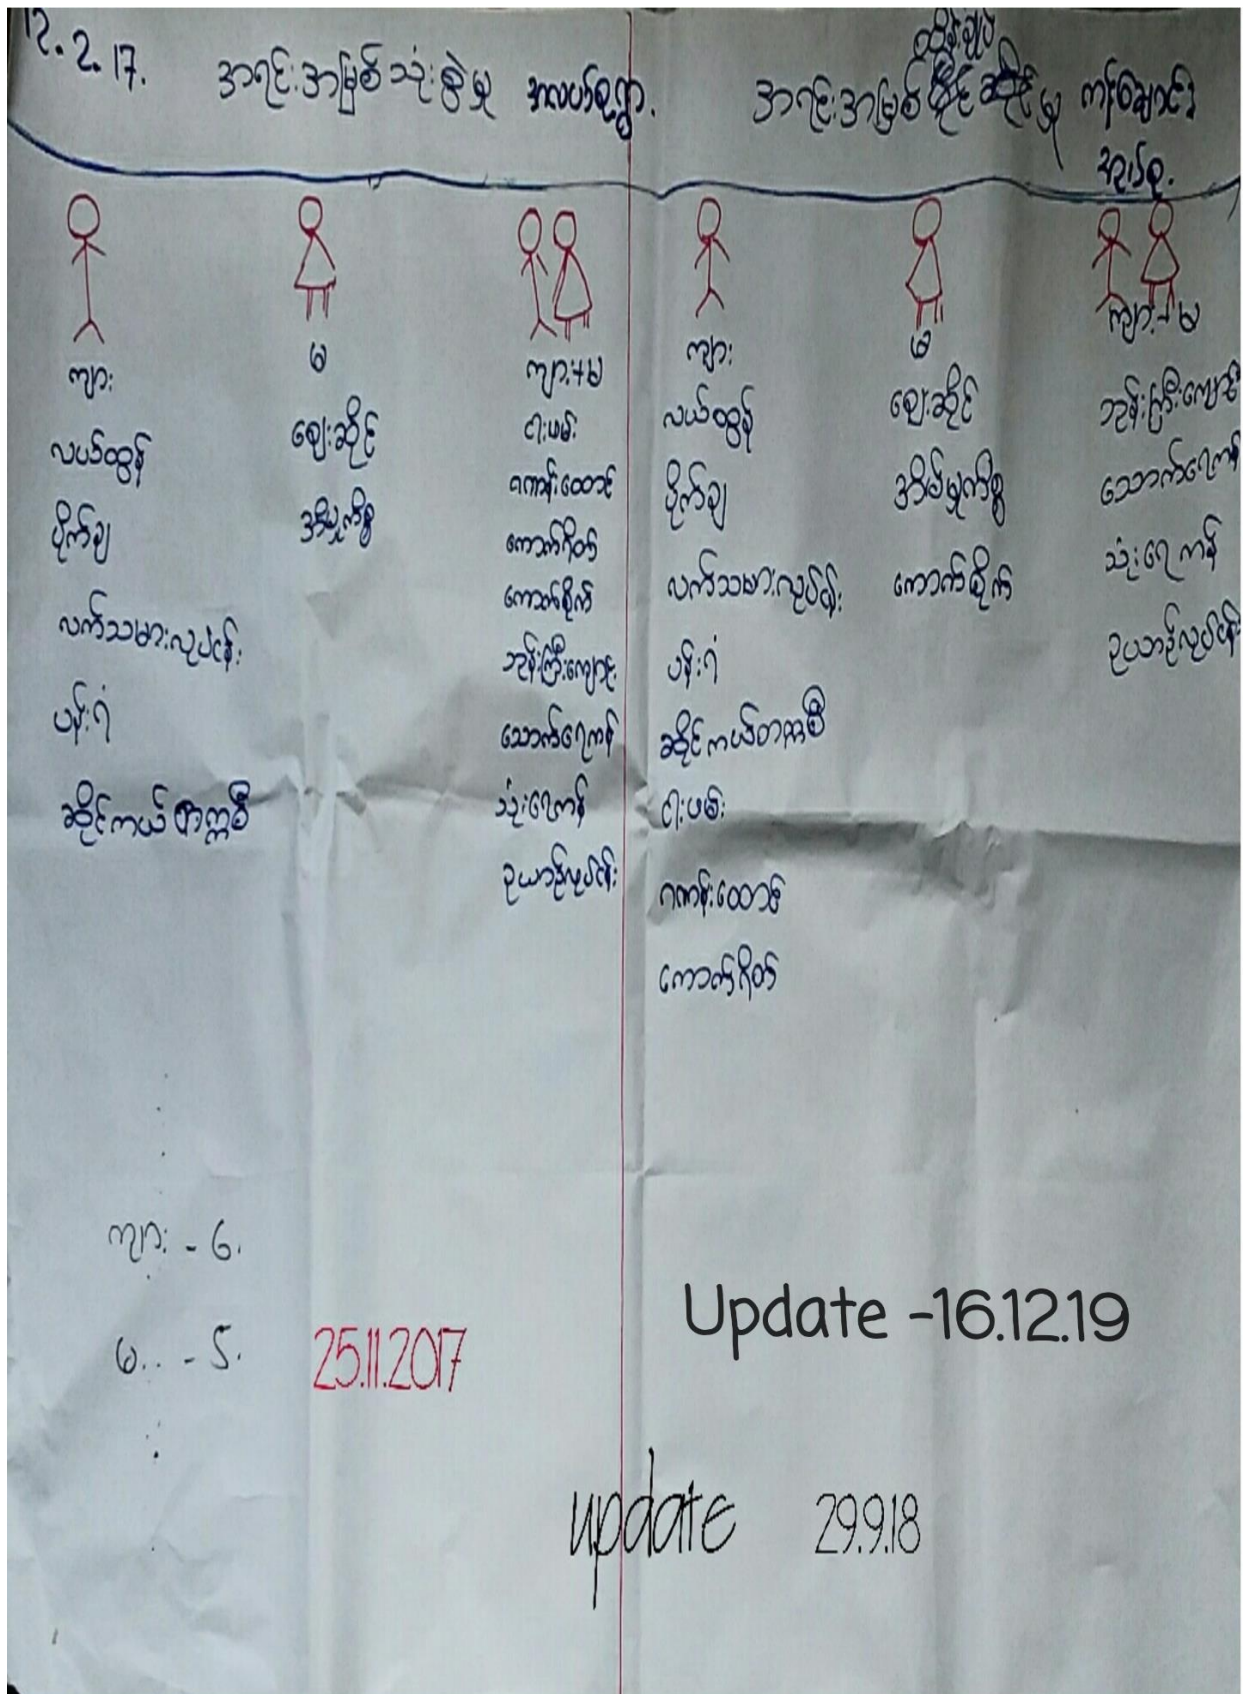 12.2.17.
အရင်းအမြစ်သုံးစွဲမှု အလယ်စုရွာ.
ကျား
လယ်ထွန်
ပိုက်ချ
လက်သမားလုပ်ငန်း
ပန်းရံ
ဆိုင်ကယ်တက္ကစီ
မ
ဈေးဆိုင်
အိမ်မှုကိစ္စ
ကျား+မ
ငါးဖမ်း
ဂဏန်းထောင်
ကောက်ရိတ်
ကောက်စိုက်
ဘုန်းကြီးကျောင်း
သောက်ရေကန်
သုံးရေကန်
ဥယာဉ်လုပ်ငန်း
ထိန်းချုပ်
အရင်းအမြစ်ပိုင်ဆိုင်မှု
ကျား
လယ်ထွန်
ပိုက်ချ
လက်သမားလုပ်ငန်း
ပန်းရံ
ဆိုင်ကယ်တက္ကစီ
ငါးဖမ်း
ဂဏန်းထောင်
ကောက်ရိတ်
မ
ဈေးဆိုင်
အိမ်မှုကိစ္စ
ကောက်စိုက်
ကျား+မ
ဘုန်းကြီးကျောင်း
သောက်ရေကန်
သုံးရေကန်
ဥယာဉ်လုပ်ငန်း
ကျား - 6.
မ.. - 5.
25.11.2017
Update -16.12.19
update 29.9.18